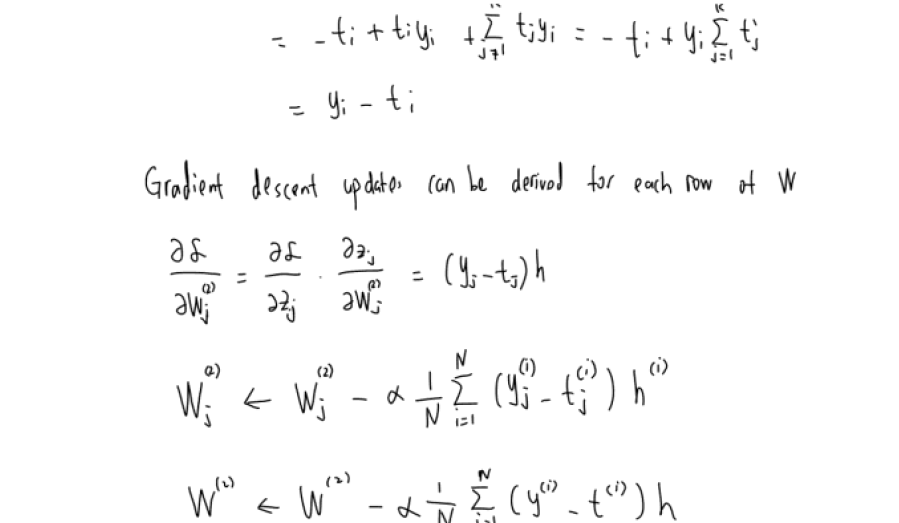 = -tᵢ + tᵢyᵢ + Σ_{j≠i} tⱼyᵢ = -tᵢ + yᵢ Σ_{j=1}^{K} tⱼ
= yᵢ - tᵢ
Gradient descent updates can be derived for each row of W
∂ℒ/∂Wⱼ⁽²⁾ = ∂ℒ/∂zⱼ · ∂zⱼ/∂Wⱼ⁽²⁾ = (yⱼ - tⱼ) h
Wⱼ⁽²⁾ ← Wⱼ⁽²⁾ - α 1/N Σ_{i=1}^{N} (yⱼ⁽ⁱ⁾ - tⱼ⁽ⁱ⁾) h⁽ⁱ⁾
W⁽²⁾ ← W⁽²⁾ - α 1/N Σ_{i=1}^{N} (y⁽ⁱ⁾ - t⁽ⁱ⁾) h